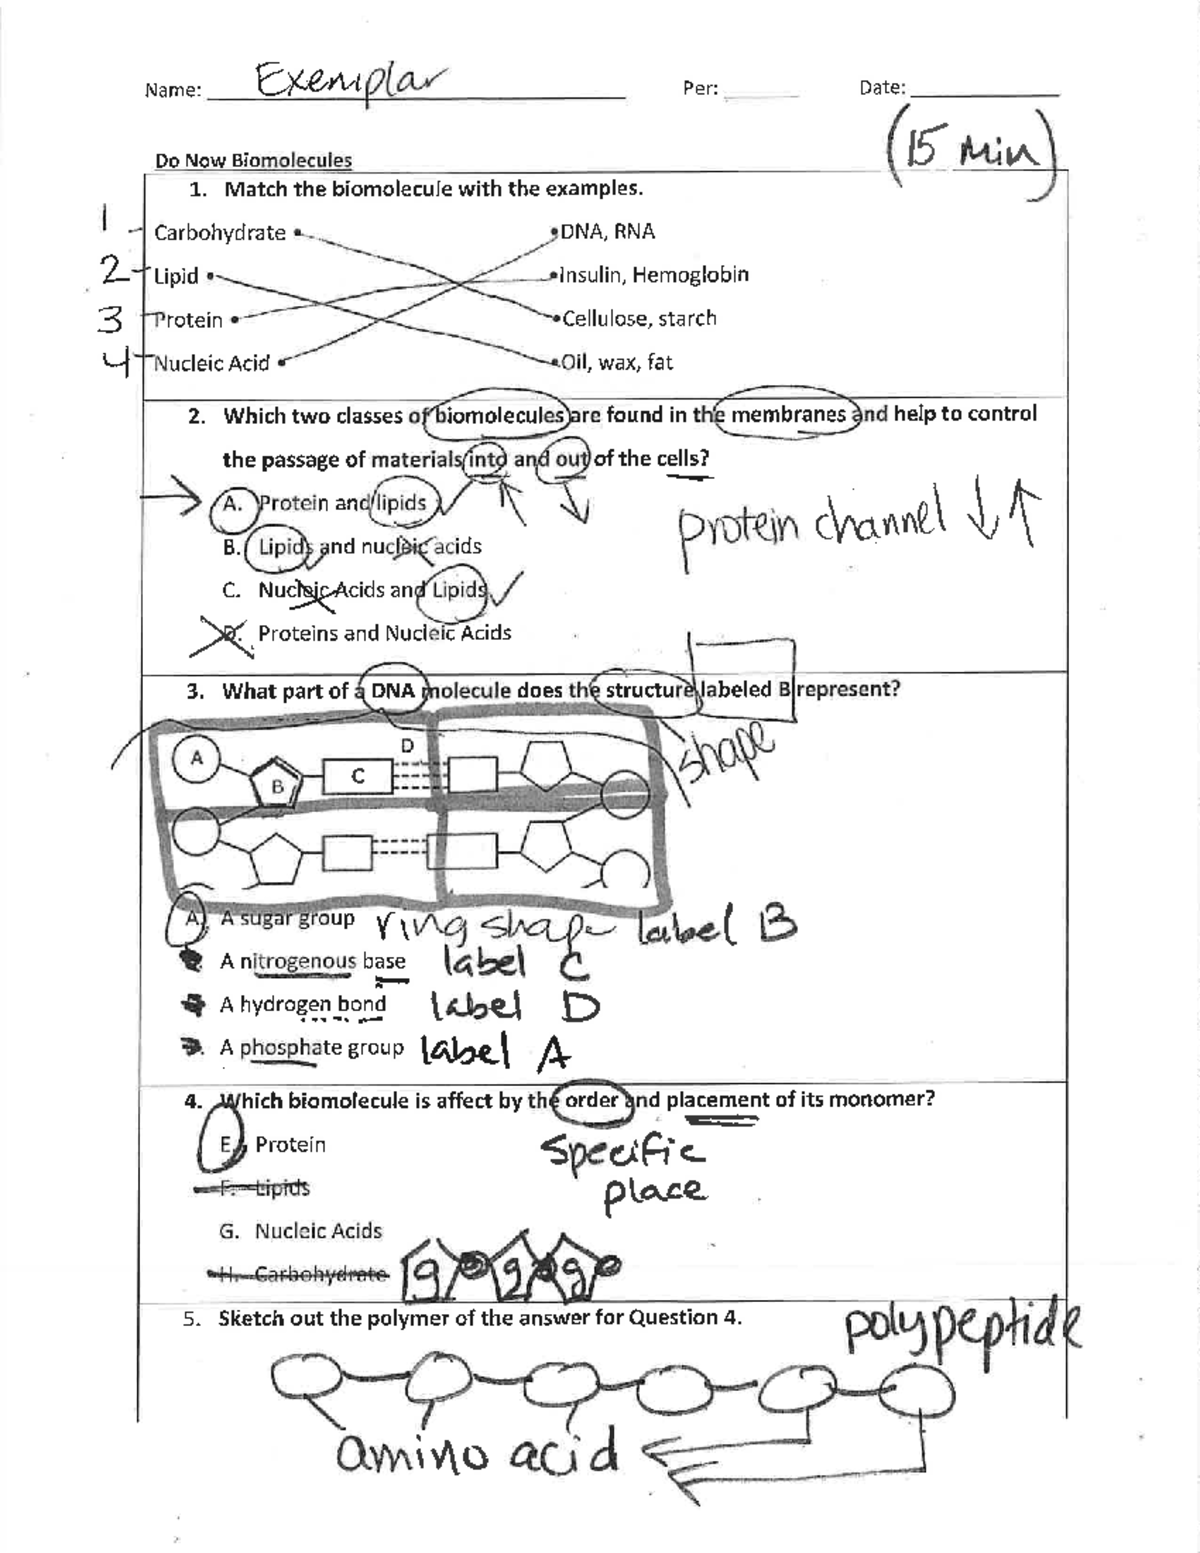 Name: Exemplar Per: Date:
(15 Min)
Do Now Biomolecules
1. Match the biomolecule with the examples.
1 Carbohydrate • •DNA, RNA
2 Lipid • •Insulin, Hemoglobin
3 Protein • •Cellulose, starch
4 Nucleic Acid • •Oil, wax, fat
2. Which two classes of biomolecules are found in the membranes and help to control
the passage of materials into and out of the cells?
A. Protein and lipids
protein channel ↓↑
B. Lipids and nucleic acids
C. Nucleic Acids and Lipids
D. Proteins and Nucleic Acids
3. What part of a DNA molecule does the structure labeled B represent?
shape
D
A
B
C
A. A sugar group ring shape label B
A nitrogenous base label C
A hydrogen bond label D
A phosphate group label A
4. Which biomolecule is affect by the order and placement of its monomer?
E. Protein specific
place
F. Lipids
G. Nucleic Acids
H. Carbohydrate g g g
5. Sketch out the polymer of the answer for Question 4.
polypeptide
amino acid